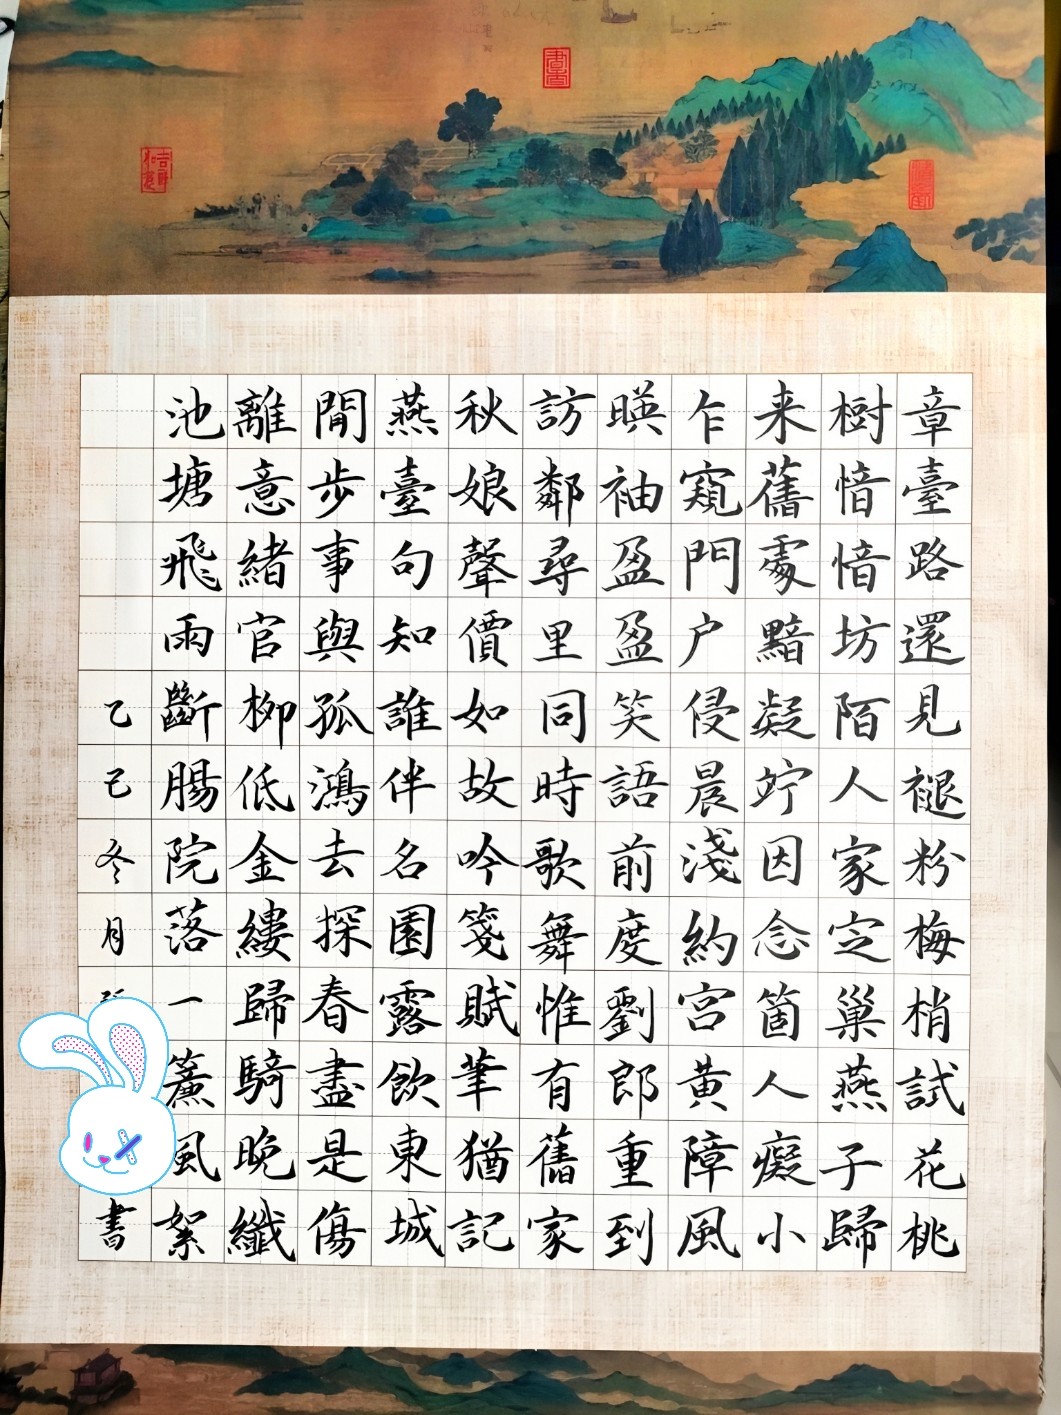 章臺路還見褪粉梅梢試花桃
樹愔愔坊陌人家定巢燕子歸
来舊處黯凝竚因念箇人癡小
乍窺門户侵晨淺約宮黃障風
暎袖盈盈笑語前度劉郎重到
訪鄰尋里同時歌舞惟有舊家
秋娘聲價如故吟箋賦筆猶記
燕臺句知誰伴名園露飲東城
閒步事與孤鴻去探春盡是傷
離意緒官柳低金縷歸騎晚纖
池塘飛雨斷腸院落一簾風絮
乙巳冬月
書